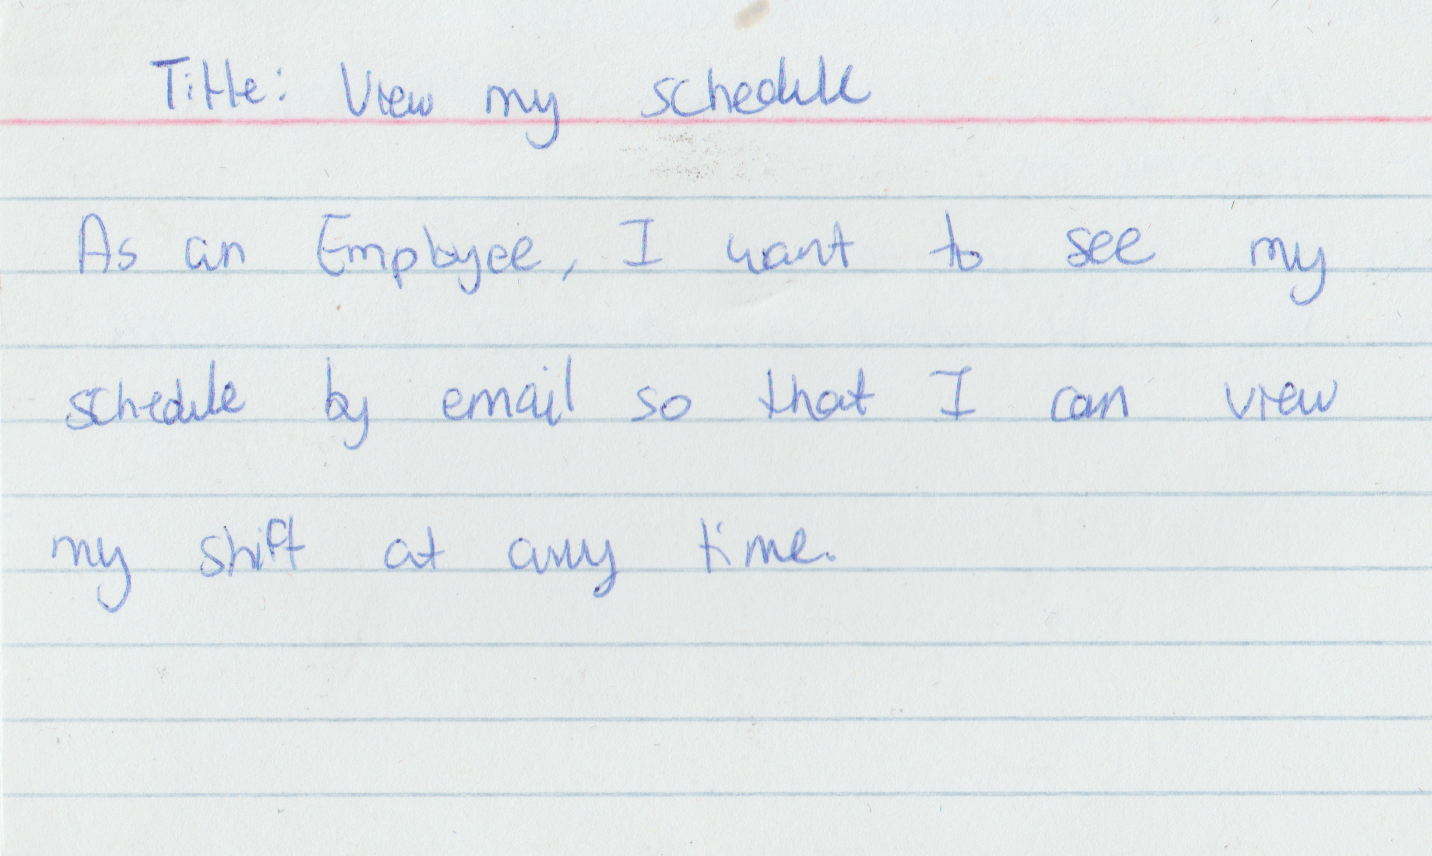 Title: View my schedule
As an Employee, I want to see my
schedule by email so that I can view
my shift at any time.